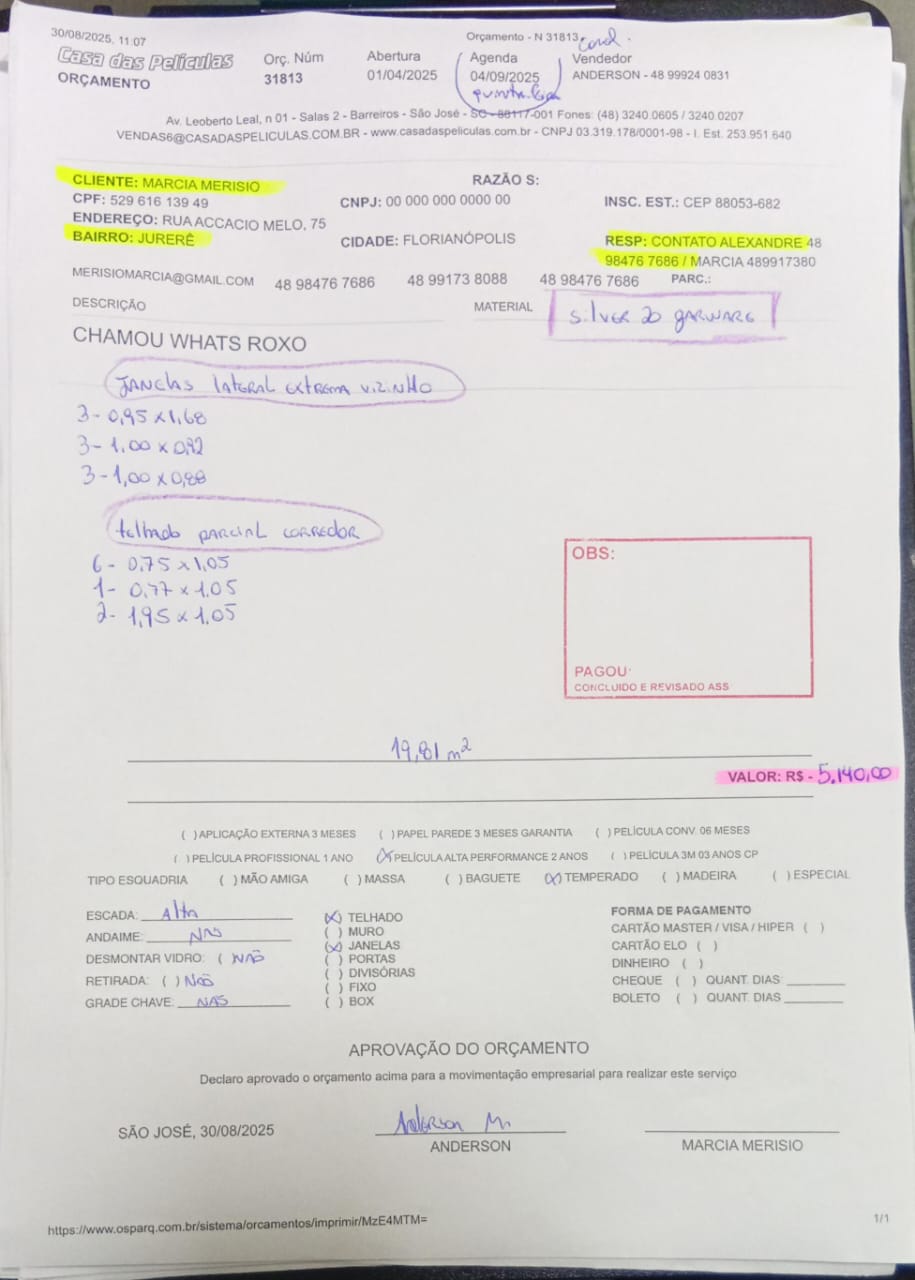 30/08/2025, 11:07
Orçamento - N 31813
Casa das Películas
ORÇAMENTO
Orç. Núm
31813
Abertura
01/04/2025
Agenda
04/09/2025
quinta-feira
Vendedor
ANDERSON - 48 99924 0831
Av. Leoberto Leal, n 01 - Salas 2 - Barreiros - São José - SC - 88117-001 Fones: (48) 3240.0605 / 3240.0207
VENDAS6@CASADASPELICULAS.COM.BR - www.casadaspeliculas.com.br - CNPJ 03.319.178/0001-98 - I. Est. 253.951.640
CLIENTE: MARCIA MERISIO
RAZÃO S:
CPF: 529 616 139 49
CNPJ: 00 000 000 0000 00
INSC. EST.: CEP 88053-682
ENDEREÇO: RUA ACCACIO MELO, 75
BAIRRO: JURERÊ
CIDADE: FLORIANÓPOLIS
RESP: CONTATO ALEXANDRE 48
98476 7686 / MARCIA 489917380
MERISIOMARCIA@GMAIL.COM
48 98476 7686
48 99173 8088
48 98476 7686
PARC.:
DESCRIÇÃO
MATERIAL
SILVER 20 GARWARE
CHAMOU WHATS ROXO
JANELAS LATERAL EXTREMA VIZINHO
3- 0,95 x 1,68
3- 1,00 x 0,92
3- 1,00 x 0,88
telhado PARCIAL CORREDOR
6- 0,75 x 1,05
1- 0,77 x 1.05
2- 1,95 x 1,05
OBS:
PAGOU:
CONCLUIDO E REVISADO ASS
19,81 m²
VALOR: R$ - 5.140,00
( ) APLICAÇÃO EXTERNA 3 MESES ( ) PAPEL PAREDE 3 MESES GARANTIA ( ) PELÍCULA CONV. 06 MESES
( ) PELÍCULA PROFISSIONAL 1 ANO (X) PELÍCULA ALTA PERFORMANCE 2 ANOS ( ) PELÍCULA 3M 03 ANOS CP
TIPO ESQUADRIA ( ) MÃO AMIGA ( ) MASSA ( ) BAGUETE (X) TEMPERADO ( ) MADEIRA ( ) ESPECIAL
ESCADA: Alta
ANDAIME: NÃO
DESMONTAR VIDRO: ( NÃO
RETIRADA: ( ) NÃO
GRADE CHAVE: NÃO
(X) TELHADO
( ) MURO
(X) JANELAS
( ) PORTAS
( ) DIVISÓRIAS
( ) FIXO
( ) BOX
FORMA DE PAGAMENTO
CARTÃO MASTER / VISA / HIPER ( )
CARTÃO ELO ( )
DINHEIRO ( )
CHEQUE ( ) QUANT. DIAS:
BOLETO ( ) QUANT. DIAS
APROVAÇÃO DO ORÇAMENTO
Declaro aprovado o orçamento acima para a movimentação empresarial para realizar este serviço
SÃO JOSÉ, 30/08/2025
Anderson M.
ANDERSON
MARCIA MERISIO
https://www.osparq.com.br/sistema/orcamentos/imprimir/MzE4MTM=
1/1